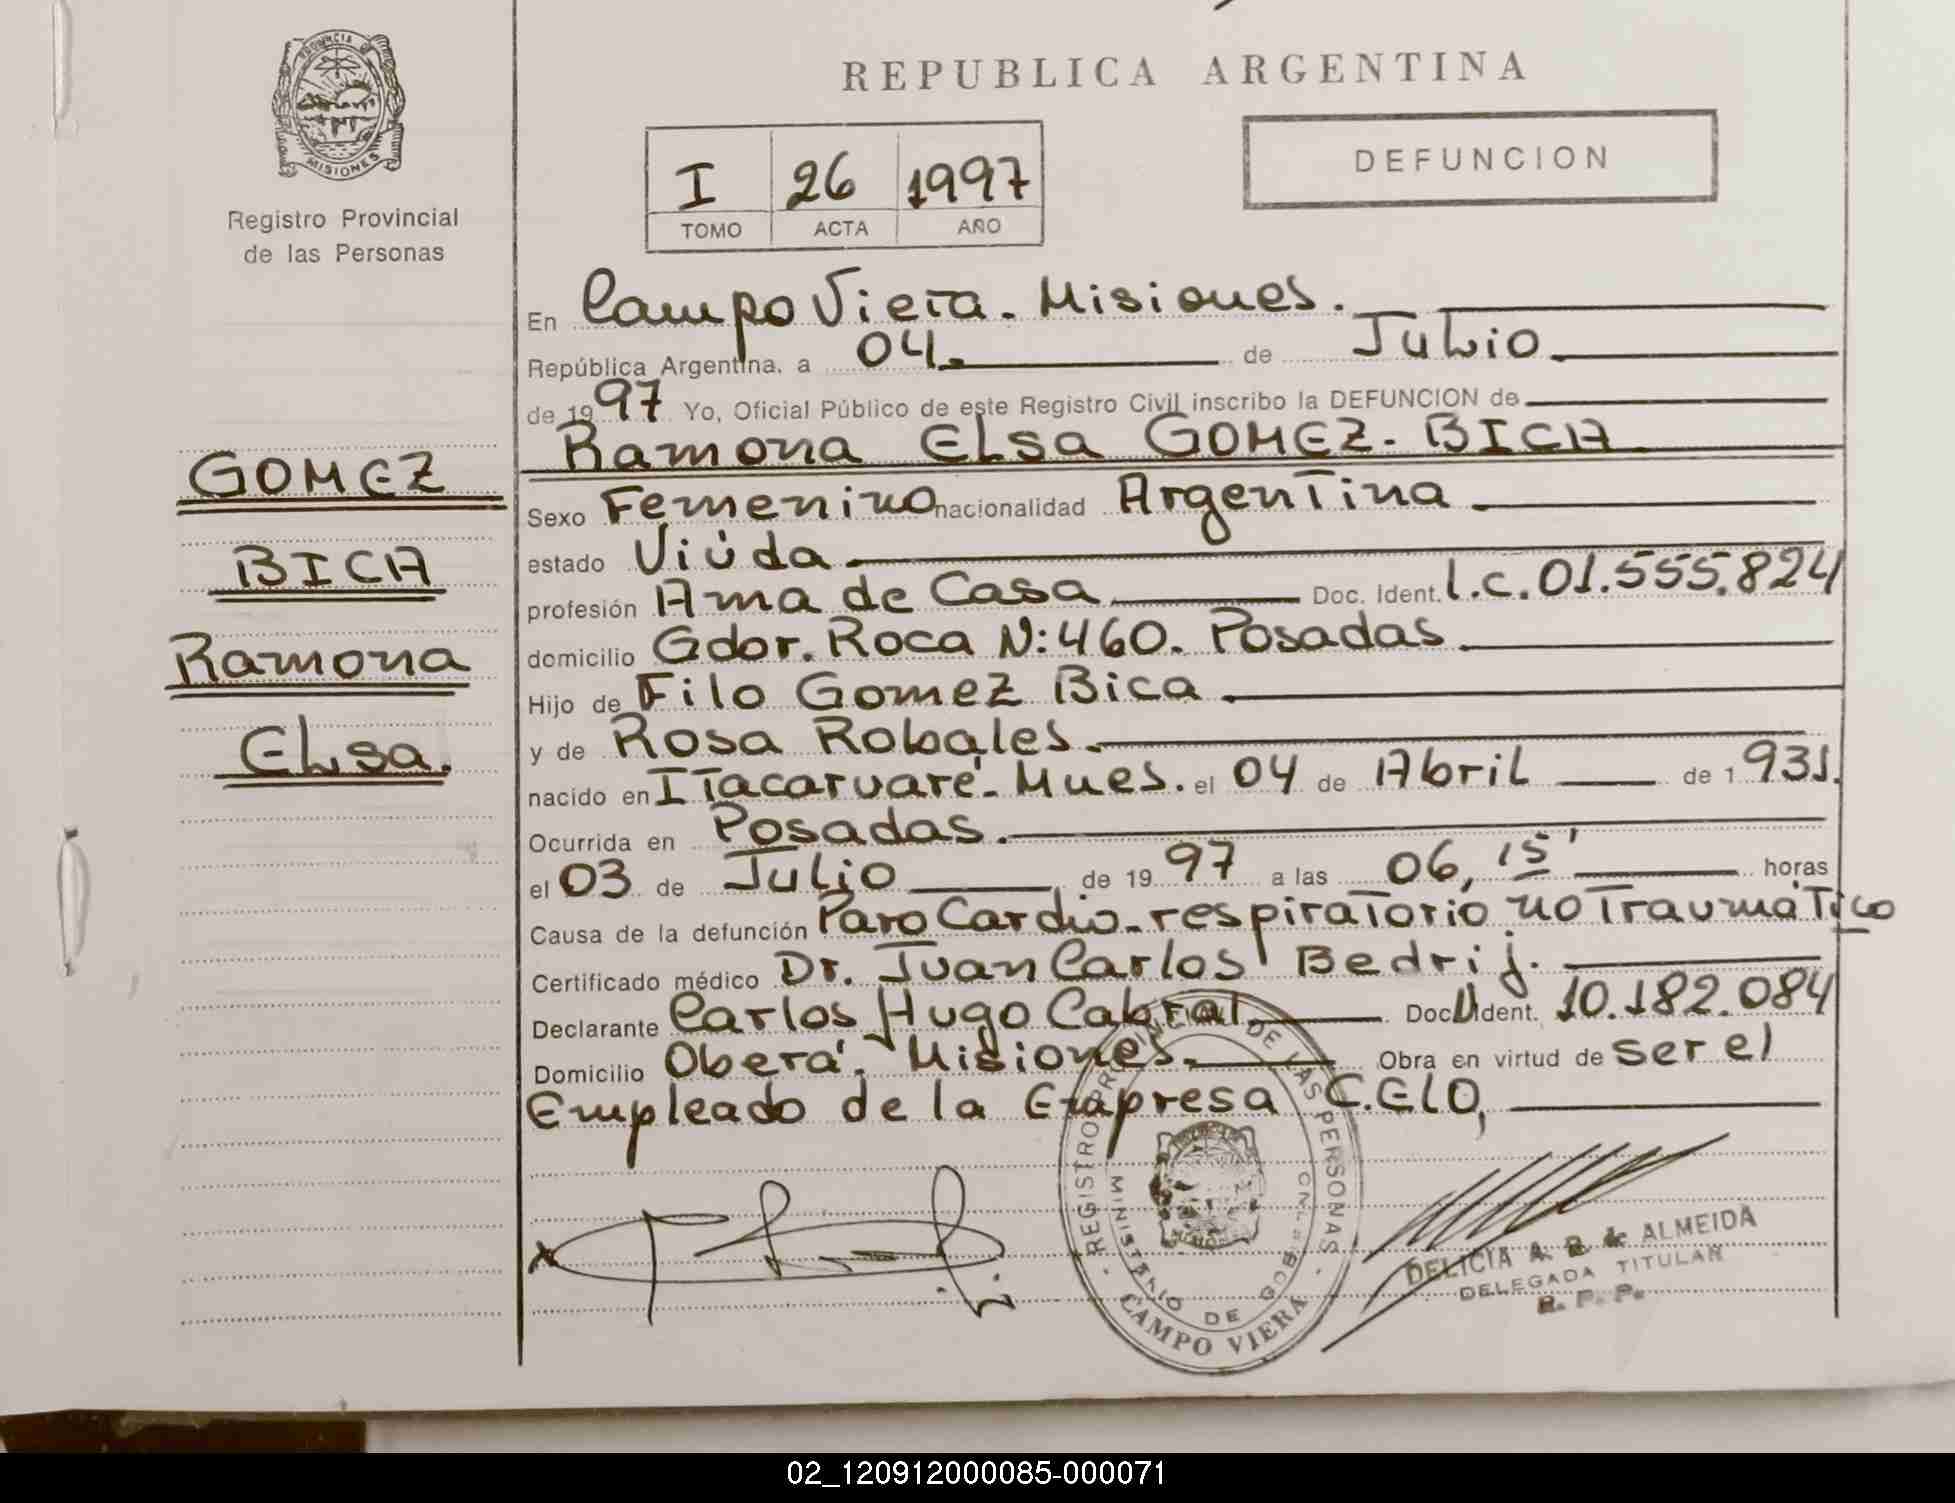 PROVINCIA DE
MISIONES
Registro Provincial
de las Personas
GOMEZ
BICA
Ramona
Elsa.
REPUBLICA ARGENTINA
I 26 1997
TOMO ACTA AÑO
DEFUNCION
En Campo Viera. Misiones.
República Argentina, a 04. de Julio
de 1997 Yo, Oficial Público de este Registro Civil inscribo la DEFUNCION de
Ramona Elsa GOMEZ. BICA
Sexo Femenino nacionalidad Argentina
estado Viúda
profesión Ama de Casa Doc. Ident. l.c. 01.555.824
domicilio Gdor. Roca N: 460. Posadas
Hijo de Filo Gomez Bica.
y de Rosa Robales.
nacido en Itacaruaré. Mnes. el 04 de Abril de 1931.
Ocurrida en Posadas.
el 03 de Julio de 1997 a las 06, 15' horas
Causa de la defunción Paro Cardio-respiratorio no Traumático
Certificado médico Dr. Juan Carlos Bedrij.
Declarante Carlos Hugo Cabral Doc. Ident. 10.182.084
Domicilio Oberá. Misiones. Obra en virtud de ser el
Empleado de la Empresa C.ELO,
- REGISTRO PROVINCIAL DE LAS PERSONAS -
MINISTERIO DE GOBIERNO
MISIONES
CAMPO VIERA
DELICIA A. R. de ALMEIDA
DELEGADA TITULAR
R. P. P.
02_120912000085-000071